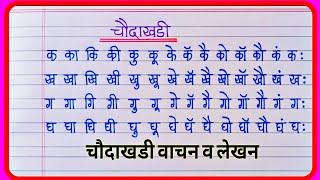 चौदाखडी
क का कि की कु कू के कॅ कै को कॉ कौ कं कः
ख खा खि खी खु खू खे खॅ खै खो खॉ खौ खं खः
ग गा गि गी गु गू गे गॅ गै गो गॉ गौ गं गः
घ घा घि घी घु घू घे घॅ घै घो घॉ घौ घं घः
चौदाखडी वाचन व लेखन